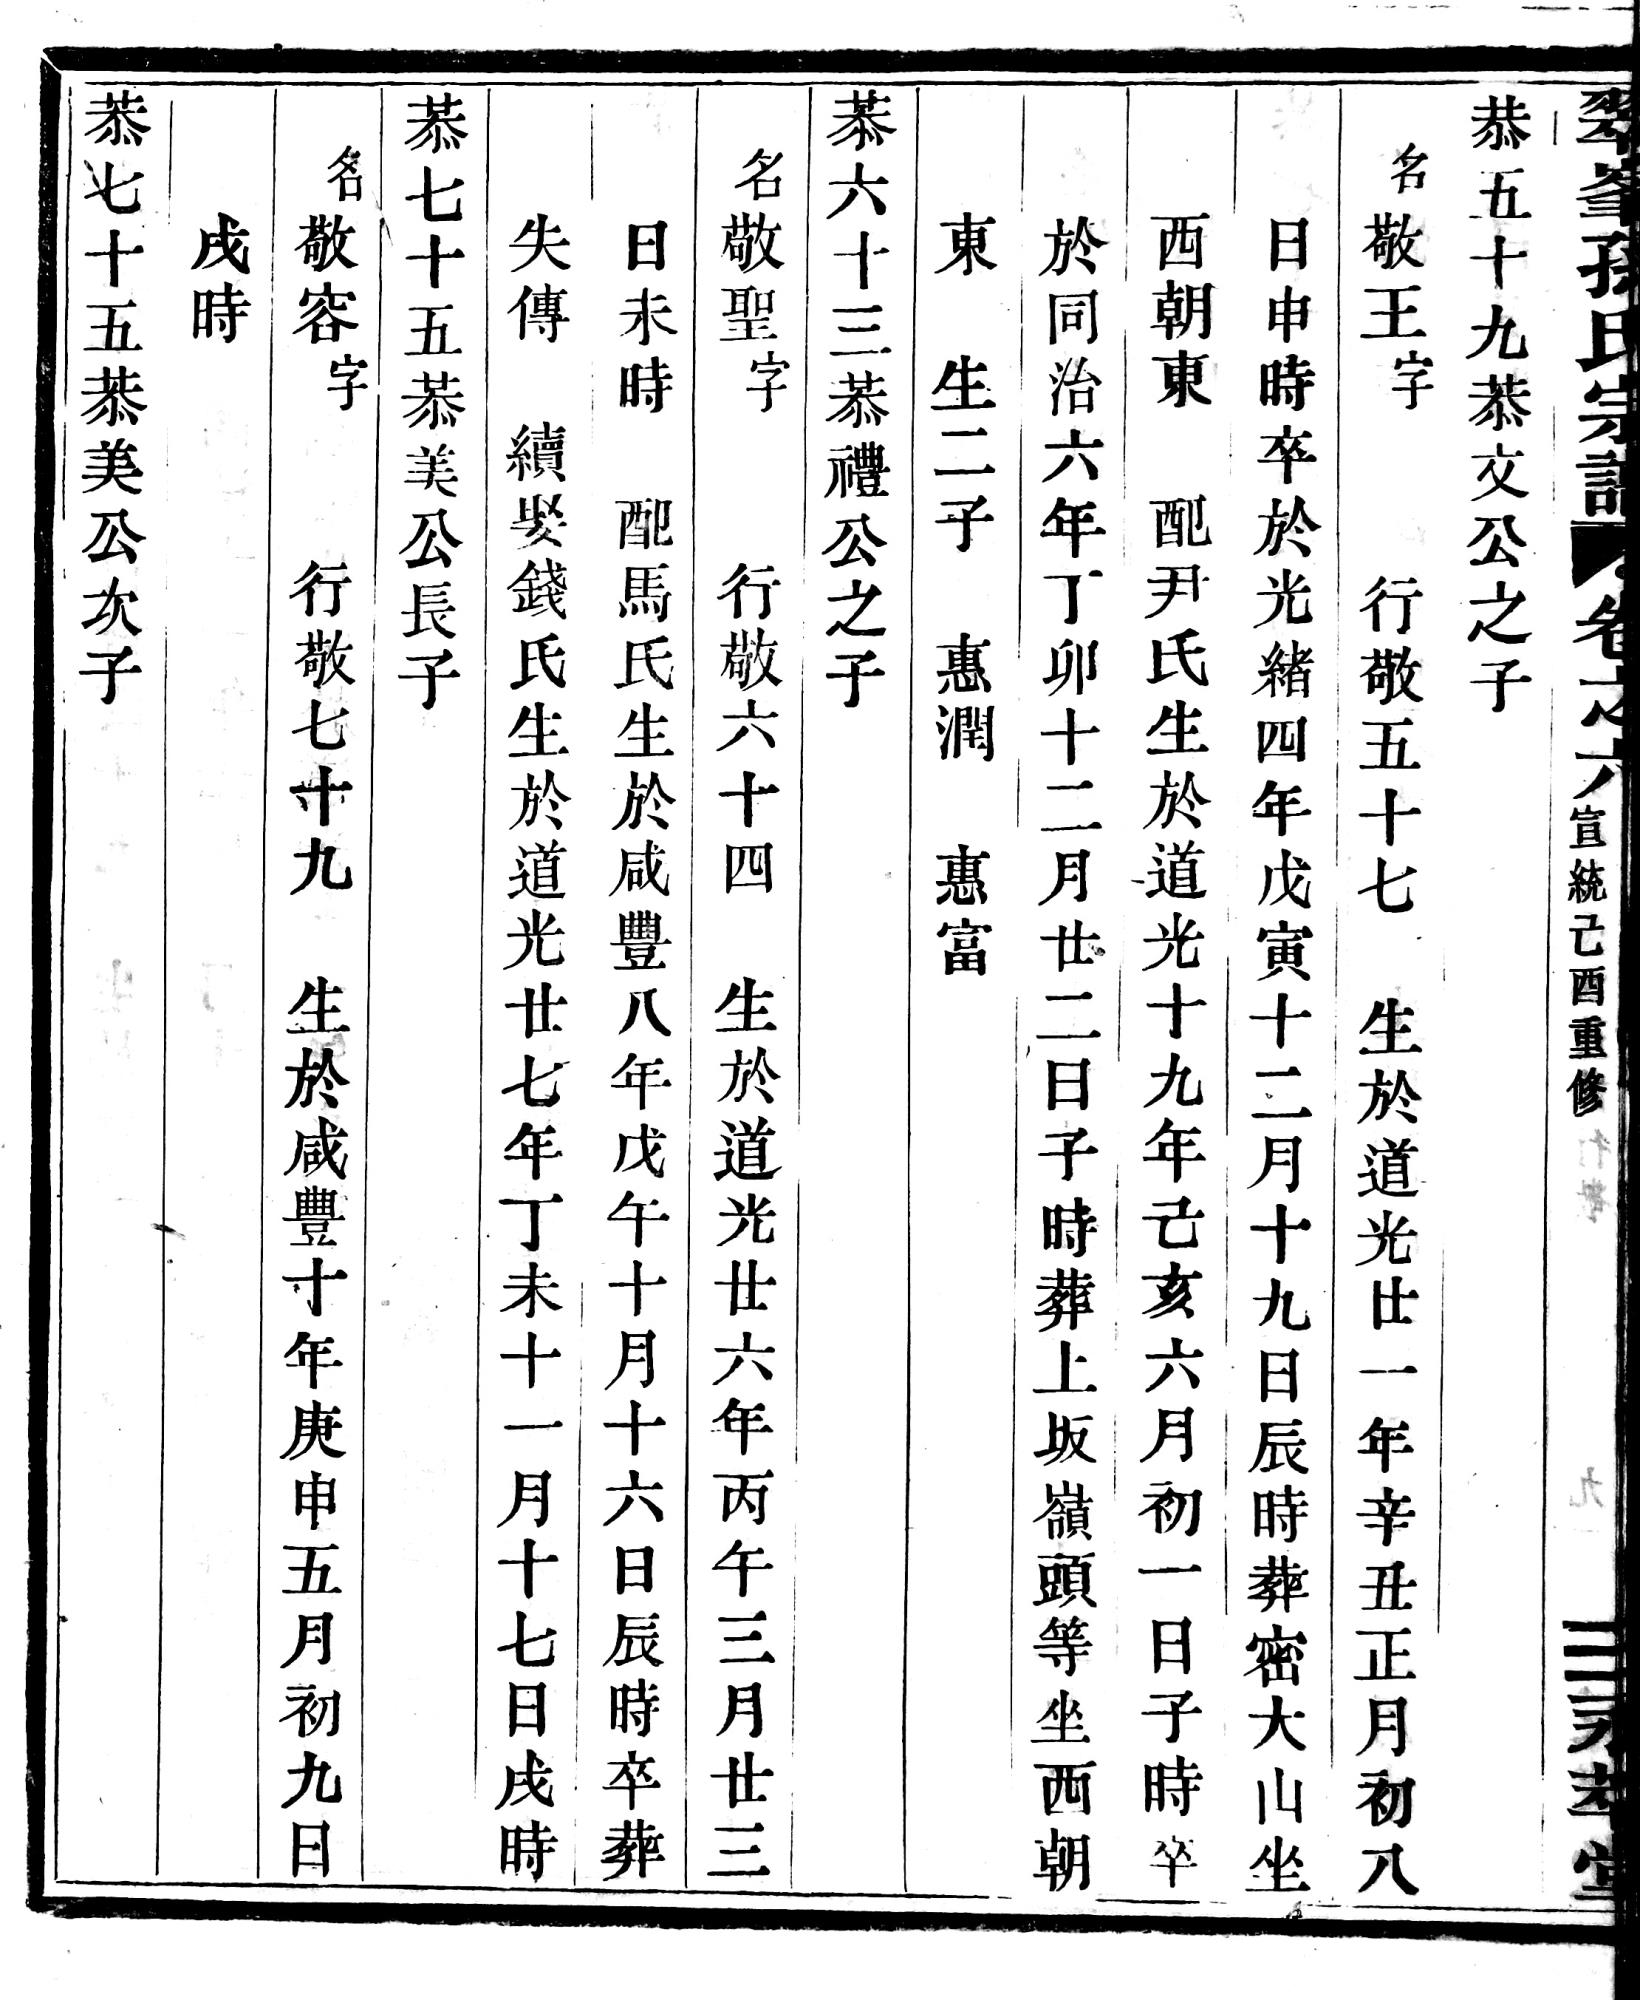 翠峯孫氏宗譜 卷之六 宣統己酉重修 三 永孝堂
恭五十九恭文公之子
名敬王字 行敬五十七 生於道光廿一年辛丑正月初八
日申時卒於光緒四年戊寅十二月十九日辰時葬密大山坐
西朝東 配尹氏生於道光十九年己亥六月初一日子時卒
於同治六年丁卯十二月廿二日子時葬上坂嶺頭等坐西朝
東 生二子 惠潤 惠富
恭六十三恭禮公之子
名敬聖字 行敬六十四 生於道光廿六年丙午三月廿三
日未時 配馬氏生於咸豐八年戊午十月十六日辰時卒葬
失傳 續娶錢氏生於道光廿七年丁未十一月十七日戌時
恭七十五恭美公長子
名敬容字 行敬七十九 生於咸豐十年庚申五月初九日
戌時
恭七十五恭美公次子